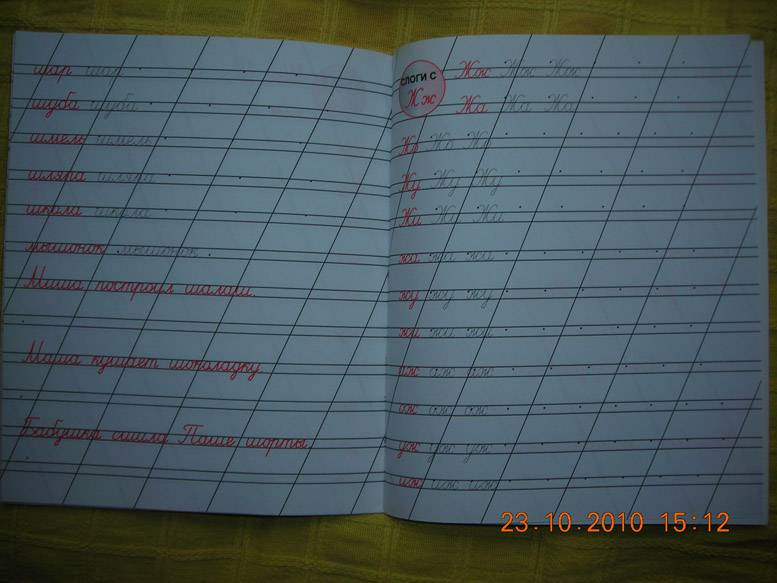 шар шар
шуба шуба
шмель шмель
шляпа шляпа
школа школа
мышонок мышонок
Миша построил шалаш.
Маша кушает шоколадку.
Бабушка сшила Паше шорты.
СЛОГИ С
Жж
Жж Жж Жж
Жа Жа Жа
Жо Жо Жо
Жу Жу Жу
Жи Жи Жи
жа жа жа
жу жу жу
жи жи жи
аж аж аж
ож ож ож
уж уж уж
иж иж иж
23.10.2010 15:12